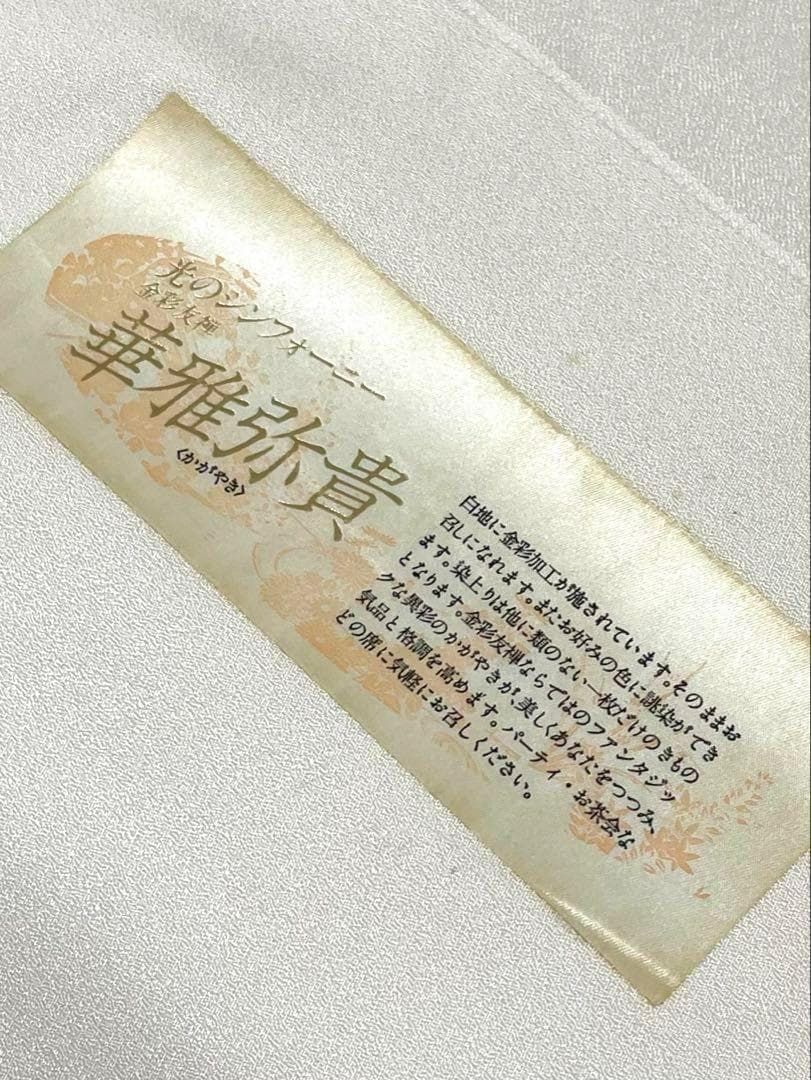 光のシンフォーニー
金彩友禅
華雅弥貴
〈かがやき〉
白地に金彩加工が施されています。そのままお
召しになれます。またお好みの色に誂染ができ
ます。染上りは他に類のない一枚だけのきもの
となります。金彩友禅ならではのファンタジッ
クな異彩のかがやきが、美しくあなたをつつみ、
気品と格調を高めます。パーティ・お茶会な
どの席に気軽にお召しください。